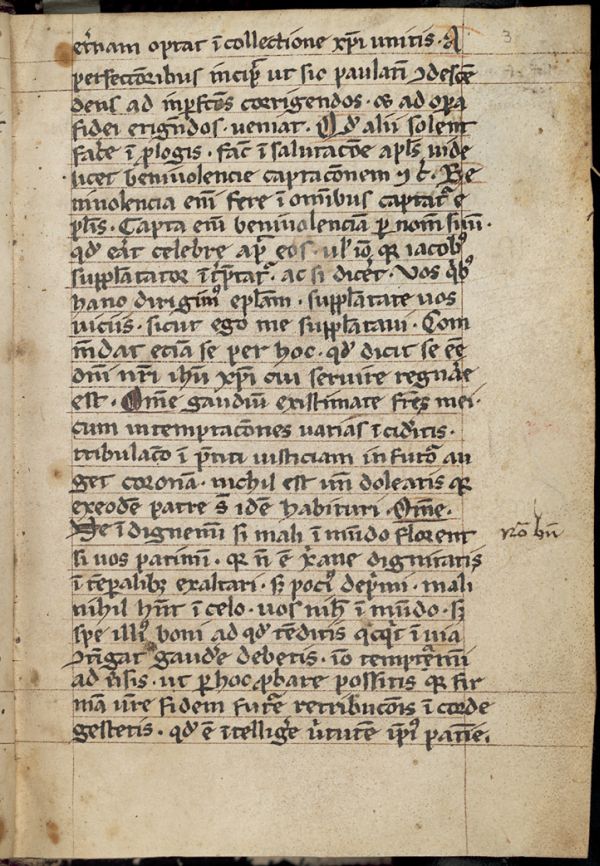 3
et̄nam optat ī collectione xp̄i unitis · A
perfectioribus incip̄ ut sic paulatī ⁊ descē
dens ad inp̄fctōs corrigendos · & ad opa
fidei erigēdos · ueniat · Qđ alii solent
facē ī p̄logis · fac̄ ī salutacōe apl̄s uide
licet beniuolencie captacōnem
niuolencia enī fere ī omībus captat̄ e
pl̄is · Capta enī beniuolenciā p̄ nom̄ suū ·
qđ erāt celebre ap̄ eos · ul̓ iō qr iacob᷒
supplātator īt̄p̄tat᷑ · ac si dicēt · Vos qͥb᷒
hanc dirigim᷒ epl̄am · supplātate uos
uiciis · sicut ego me supplātaui · Com
m̄dat eciā se per hoc · qđ dicit se eē
dn̄i nr̄i ih̄u xp̄i cui seruire regnāe
est · Om̄e gaudiū existimate frēs mei ·
cum in temptacōnes uarias īcidītis ·
tribulacō ī p̄nti iusticiam in futō au
get coronā · nichil est un̄ doleatis qr
ex eodē patre s̄t idē habituri · Om̄e ·
Ne īdignemī si mali ī mūdo florent
si uos patimī · qr n̄ ē x̄iane dignitatis
ī tēp̄alib᷒ exaltari · sꝫ poci᷒ dep̄mi · mali
nihil hn̄t ī celo · uos nih̄ ī mūdo · sꝫ
spe illi᷒ boni ad qđ tēditis qcqͥd ī uia
9tīgat gaudē debetis · iō temptamī
ad ūsis · ut per hoc p̄bare possitis qr fir
mā ur̄e fidem futē retribucōis ī corde
gestetis · qđ ē ītelligē ūtutē ip̄i᷒ paciē